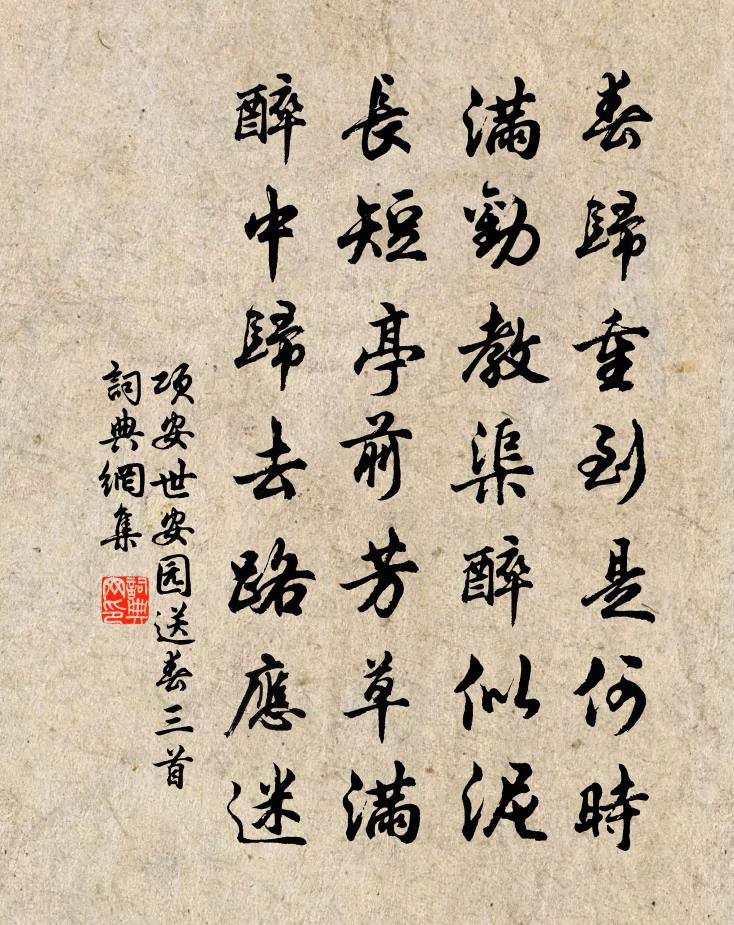 春歸重到是何時
滿勸教渠醉似泥
長短亭前芳草滿
醉中歸去路應迷
项安世安园送春三首
詞典網集
詞典網印